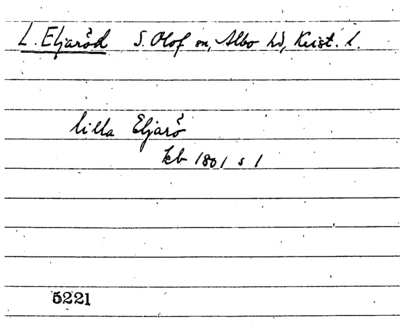 L. Eljaröd S. Olof sn, Albo hd, Krist. l.
lilla Eljarö
kb 1801 s 1
5221